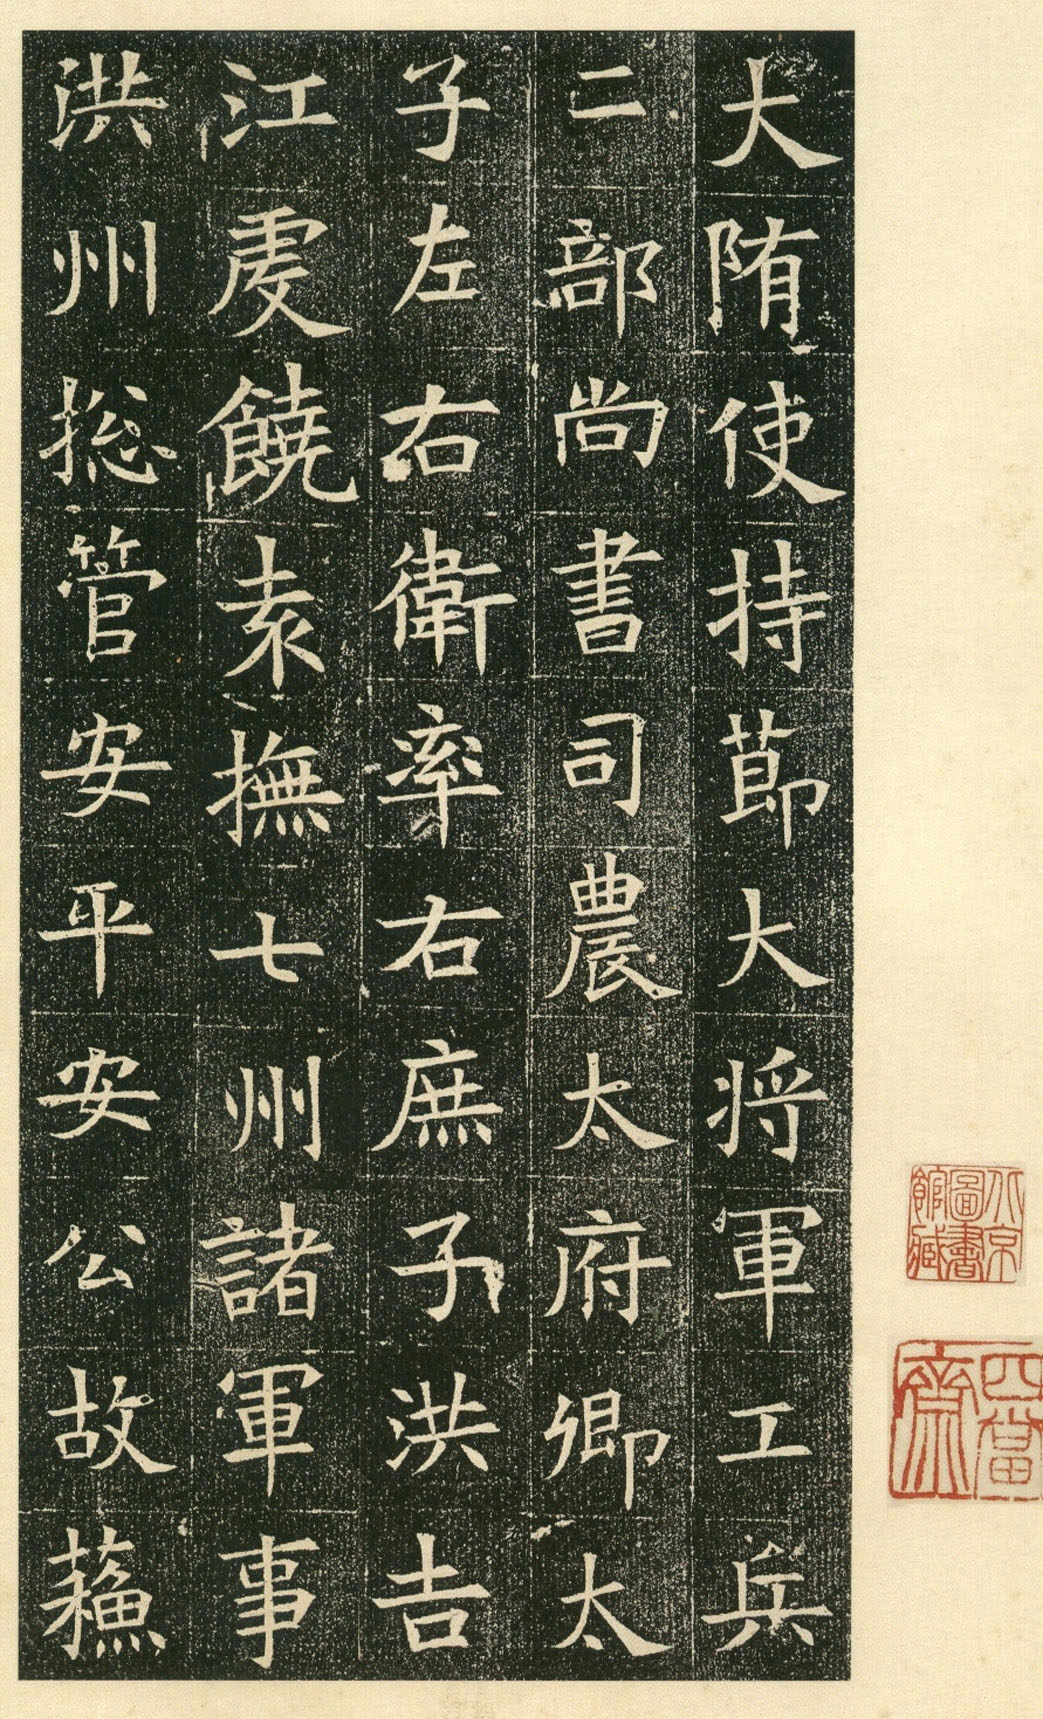 大陏使持莭大将軍工兵
二部尚書司農太府卿太
子左右衛率右庶子洪吉
江虔饒袁撫七州諸軍事
洪州捴管安平安公故蘓
北京圖書館藏
四當齋